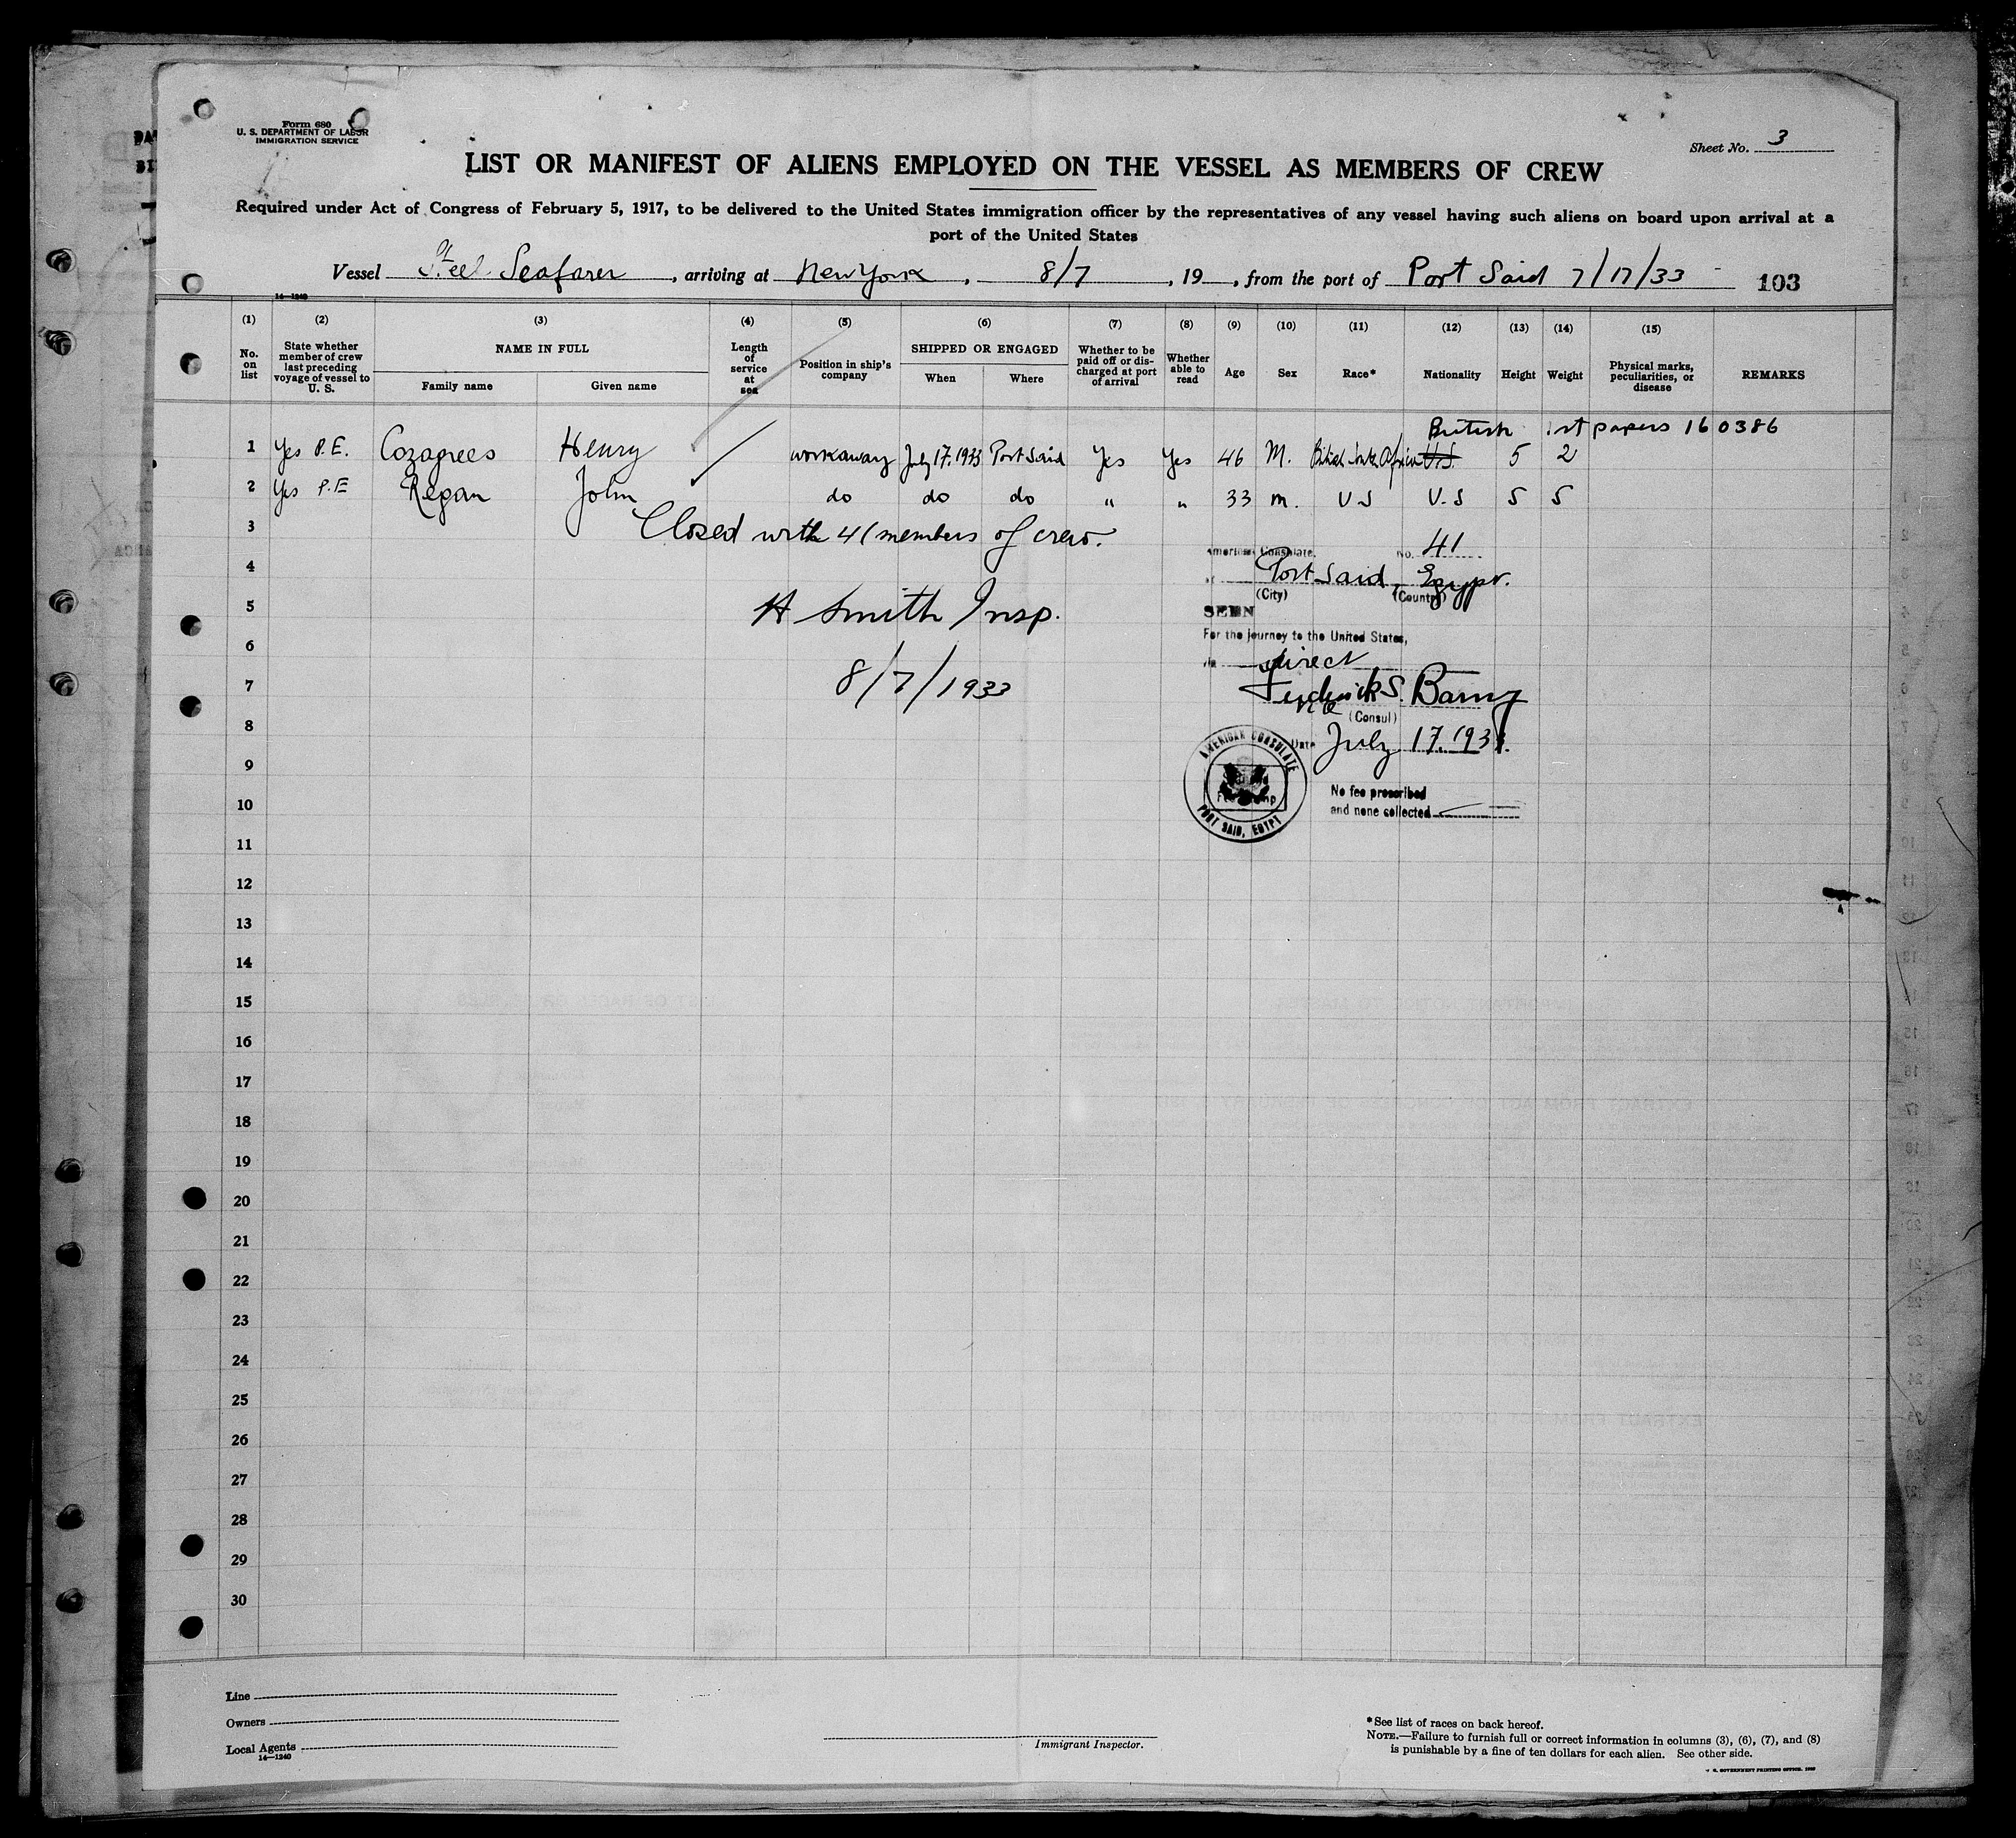 Form 680
U. S. DEPARTMENT OF LABOR
IMMIGRATION SERVICE
Sheet No. 3
LIST OR MANIFEST OF ALIENS EMPLOYED ON THE VESSEL AS MEMBERS OF CREW
Required under Act of Congress of February 5, 1917, to be delivered to the United States immigration officer by the representatives of any vessel having such aliens on board upon arrival at a
port of the United States
Vessel Steel Seafarer, arriving at New York, 8/7, 19 , from the port of Port Said 7/17/33 103
14—1240
(1) (2) (3) (4) (5) (6) (7) (8) (9) (10) (11) (12) (13) (14) (15)
No. on list
State whether member of crew last preceding voyage of vessel to U. S.
NAME IN FULL
Family name Given name
Length of service at sea
Position in ship's company
SHIPPED OR ENGAGED
When Where
Whether to be paid off or discharged at port of arrival
Whether able to read
Age
Sex
Race*
Nationality
Height
Weight
Physical marks, peculiarities, or disease
REMARKS
British 1st papers 160386
1 Yes P.E. Cozagrees Henry workaway July 17. 1933 Port Said Yes Yes 46 M. British South African U.S. 5 2
2 Yes P.E Regan John do do do " " 33 m. U S U.S 5 5
3 Closed with 41 members of crew.
American Consulate, No. 41
4 Port Said, Egypt.
(City) (Country)
5 H Smith Insp.
SEEN
For the journey to the United States,
6 direct
7 8/7/1933
Frederick S. Barny
Vice (Consul)
8 Date July 17. 1933.
AMERICAN CONSULATE
PORT SAID, EGYPT
9
No fee prescribed
and none collected
10
11
12
13
14
15
16
17
18
19
20
21
22
23
24
25
26
27
28
29
30
Line
Owners
Local Agents
14—1240
Immigrant Inspector.
*See list of races on back hereof.
NOTE.—Failure to furnish full or correct information in columns (3), (6), (7), and (8)
is punishable by a fine of ten dollars for each alien. See other side.
U. S. GOVERNMENT PRINTING OFFICE.